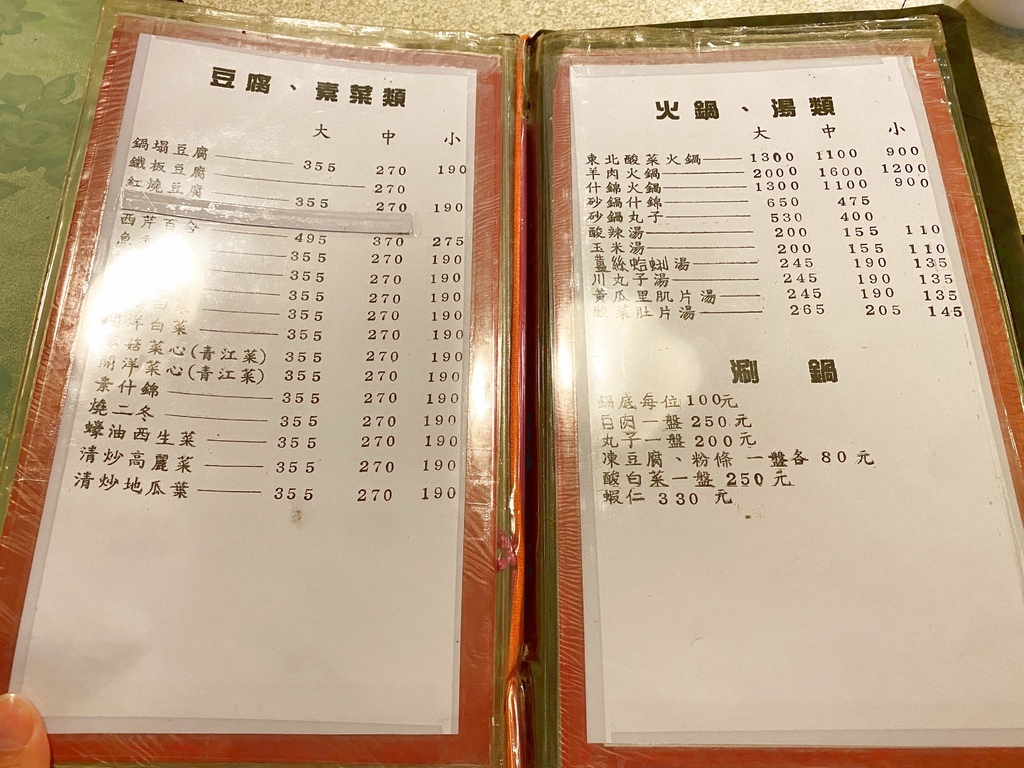 豆腐、素菜類
大 中 小
鍋塌豆腐 355 270 190
鐵板豆腐 270
紅燒豆腐 355 270 190
西芹百合 495 370 275
魚 355 270 190
355 270 190
355 270 190
355 270 190
洋白菜 355 270 190
菇菜心(青江菜) 355 270 190
開洋菜心(青江菜) 355 270 190
素什錦 355 270 190
燒二冬 355 270 190
蠔油西生菜 355 270 190
清炒高麗菜 355 270 190
清炒地瓜葉 355 270 190
火鍋、湯類
大 中 小
東北酸菜火鍋 1300 1100 900
羊肉火鍋 2000 1600 1200
什錦火鍋 1300 1100 900
砂鍋什錦 650 475
砂鍋丸子 530 400
酸辣湯 200 155 110
玉米湯 200 155 110
薑絲蛤蜊湯 245 190 135
川丸子湯 245 190 135
黃瓜里肌片湯 245 190 135
酸菜肚片湯 265 205 145
涮鍋
鍋底每位100元
白肉一盤250元
丸子一盤200元
凍豆腐、粉條 一盤各 80 元
酸白菜一盤 250 元
蝦仁 330 元